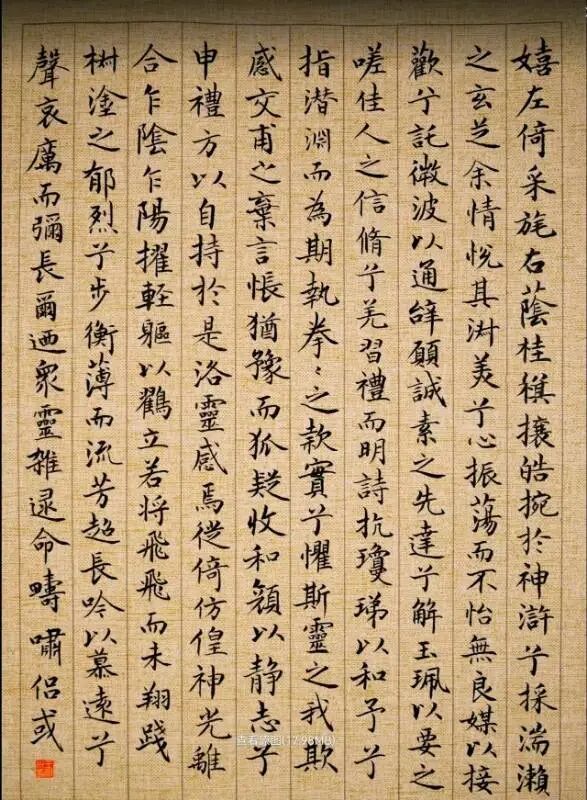 嬉左倚采旄右蔭桂旗攘皓捥於神滸兮採湍瀨
之玄芝余情悅其淑美兮心振蕩而不怡無良媒以接
歡兮託微波以通辭願誠素之先達兮解玉珮以要之
嗟佳人之信脩兮羌習禮而明詩抗瓊珶以和予兮
指潛淵而為期執拳〻之款實兮懼斯靈之我欺
感交甫之棄言悵猶豫而狐疑收和顏以靜志兮
申禮方以自持於是洛靈感焉徙倚仿偟神光離
合乍陰乍陽擢輕軀以鶴立若將飛飛而未翔踐
樹塗之郁烈兮步衡薄而流芳超長吟以慕遠兮
聲哀厲而彌長爾迺眾靈雜遝命疇嘯侶或
查看原图(17.98MB)